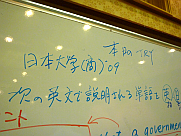 日本大学(商)'09
次の英文で説明される単語を
ニト
a governmen